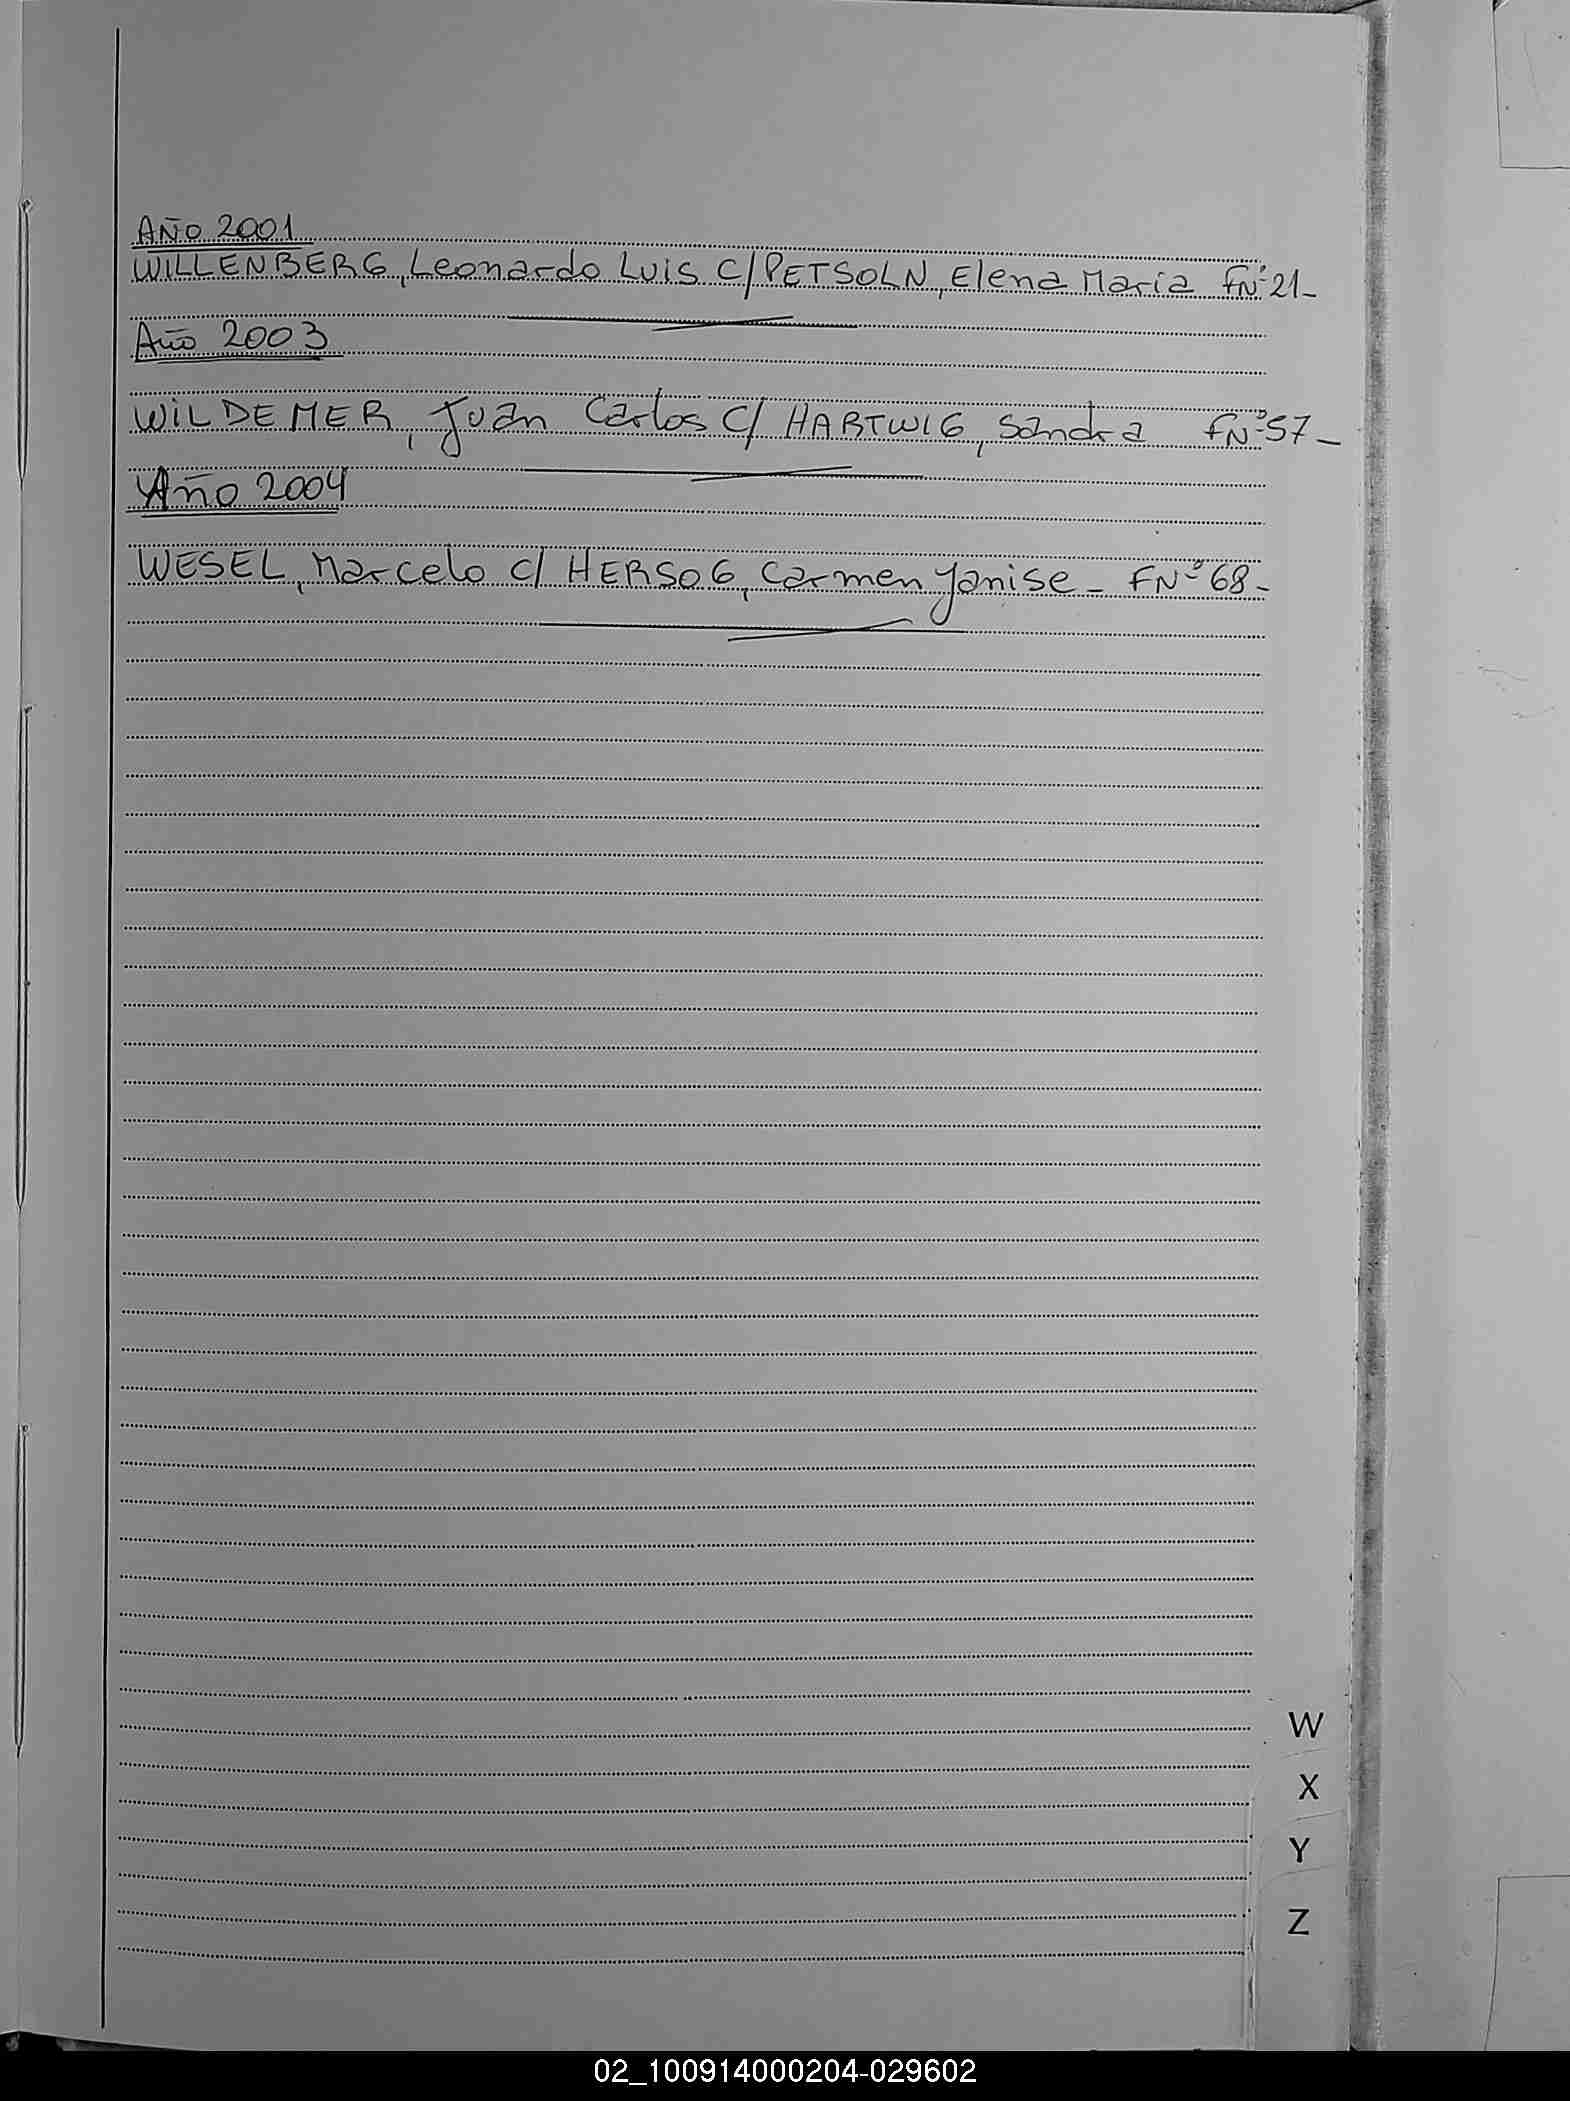 AÑO 2001
WILLENBERG, Leonardo Luis C/PETSOLN, Elena Maria FNº21-
Año 2003
WILDEMER, Juan Carlos C/ HARTWIG, Sandra FNº57-
Año 2004
WESEL, Marcelo C/ HERSOG, Carmen Yanise - FNº68-
W
X
Y
Z
02_100914000204-029602